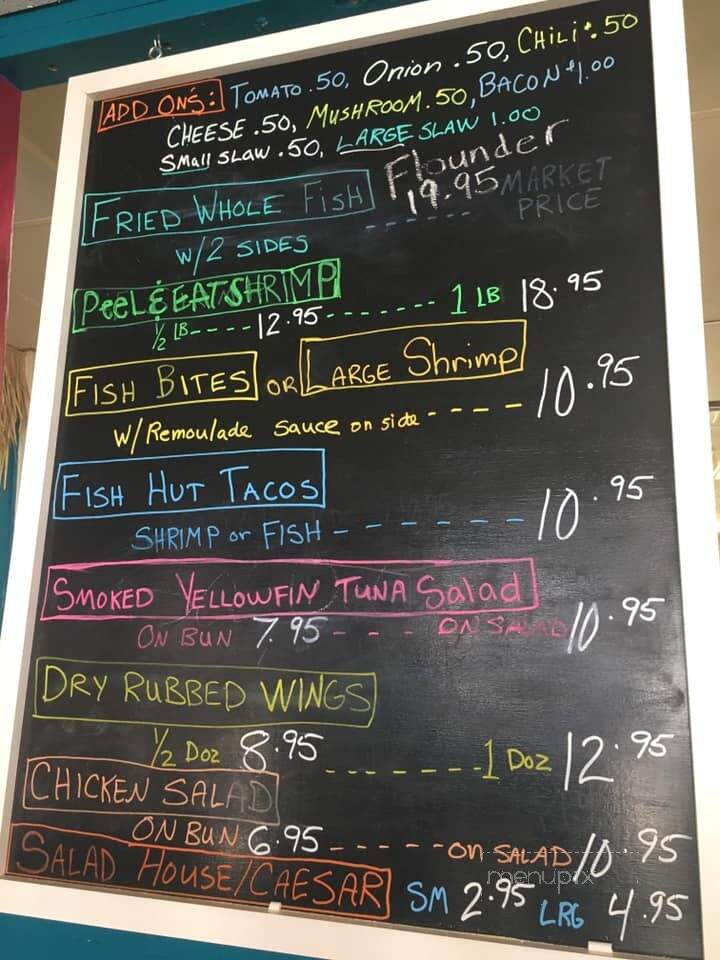 ADD ONS: TOMATO .50, Onion .50, CHILI $.50
CHEESE .50, MUSHROOM .50, BACON $1.00
SMall SLAW .50, LARGE SLAW 1.00
FRIED WHOLE FISH Flounder 19.95 MARKET PRICE
W/2 SIDES
PeeL & EAT SHRIMP
½ LB---- 12.95 ------- 1 LB 18.95
FISH BITES OR LARGE Shrimp
W/ Remoulade sauce on side ---- 10.95
FISH HUT TACOS
SHRIMP or FISH ------ 10.95
SMOKED YELLOWFIN TUNA Salad
ON BUN 7.95 - - - ON SALAD 10.95
DRY RUBBED WINGS
½ Doz 8.95 ------- 1 Doz 12.95
CHICKEN SALAD
ON BUN 6.95 ----- on SALAD 10.95
SALAD HOUSE/CAESAR SM 2.95 LRG 4.95
menupix